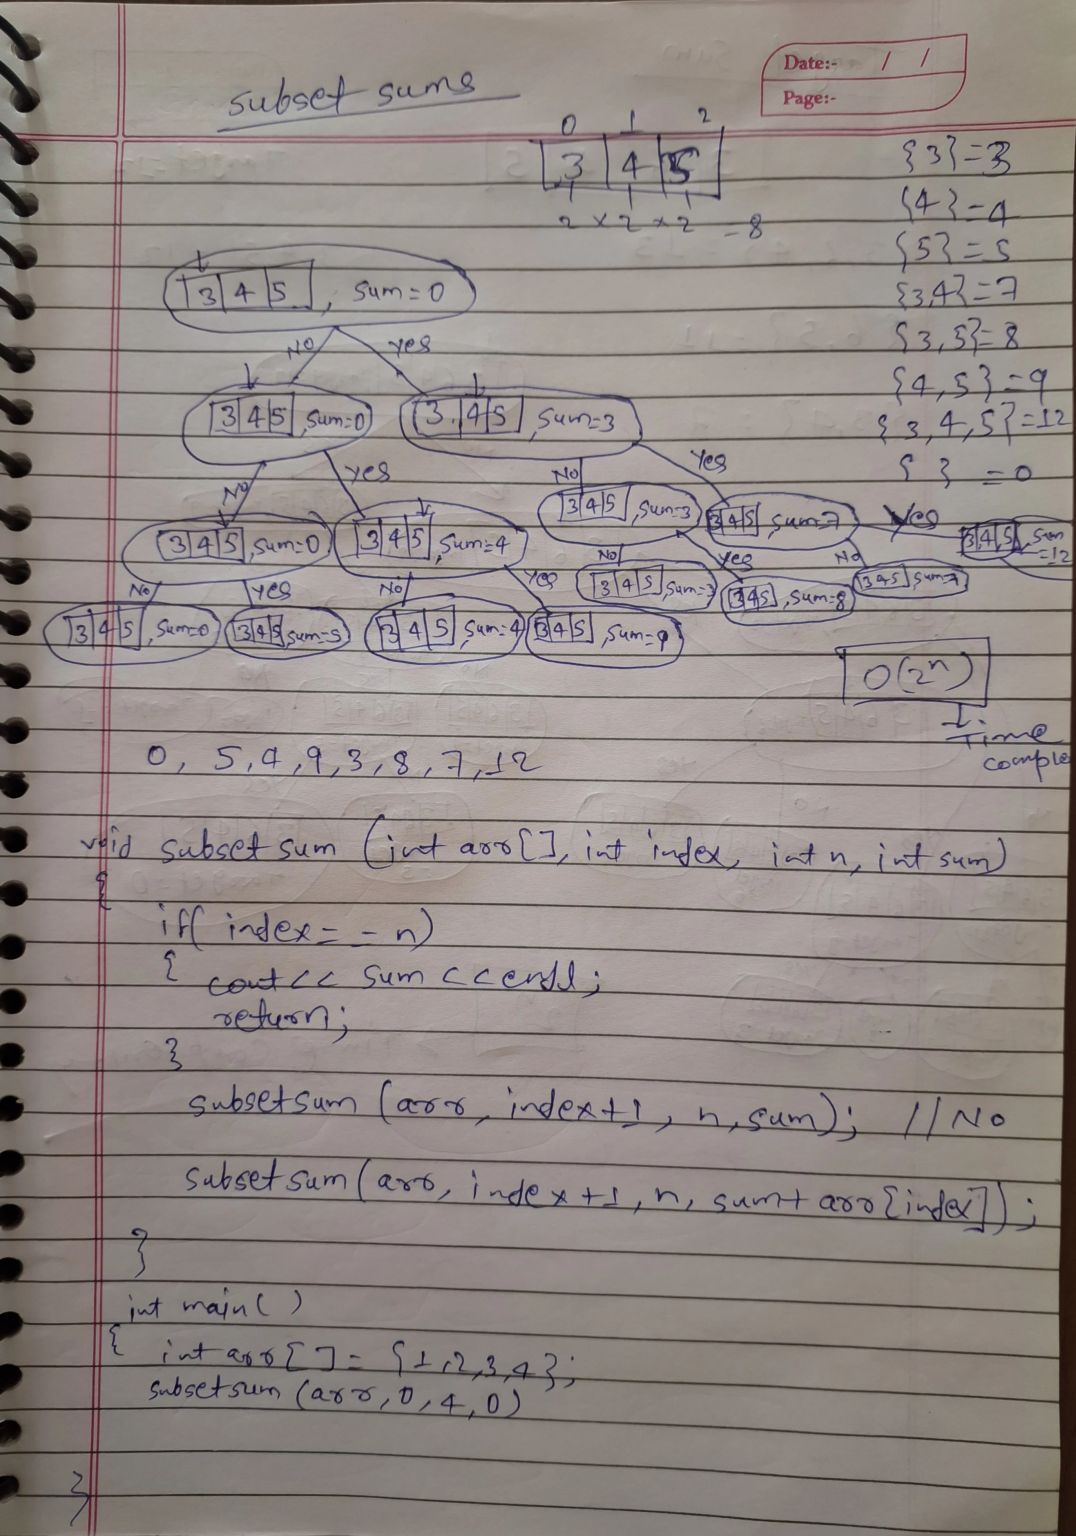 Date:- / /
Page:-
subset sums
0 1 2
3 4 5
2 x 2 x 2 = 8
{3}=3
{4}=4
{5}=5
{3,4}=7
{3,5}=8
{4,5}=9
{3,4,5}=12
{ }=0
3 4 5, sum=0
No yes
3 4 5, sum=0
3 4 5, sum=3
No yes No yes
3 4 5, sum=0
3 4 5, sum=4
3 4 5, sum=3
3 4 5, sum=7
No yes No yes No yes No Yes
3 4 5, sum=0
3 4 5 sum=5
3 4 5 sum=4
3 4 5, sum=9
3 4 5 sum=3
3 4 5, sum=8
3 4 5 sum=7
3 4 5, sum=12
O(2^n)
Time
comple
0, 5, 4, 9, 3, 8, 7, 12
void subsetsum (int arr[], int index, int n, int sum)
{
if( index==n)
{ cout<< sum <<endl;
return;
}
subsetsum (arr, index+1, n, sum); // No
subsetsum (arr, index+1, n, sum+arr[index]);
}
int main()
{ int arr[]= {1,2,3,4};
subsetsum (arr, 0, 4, 0)
}